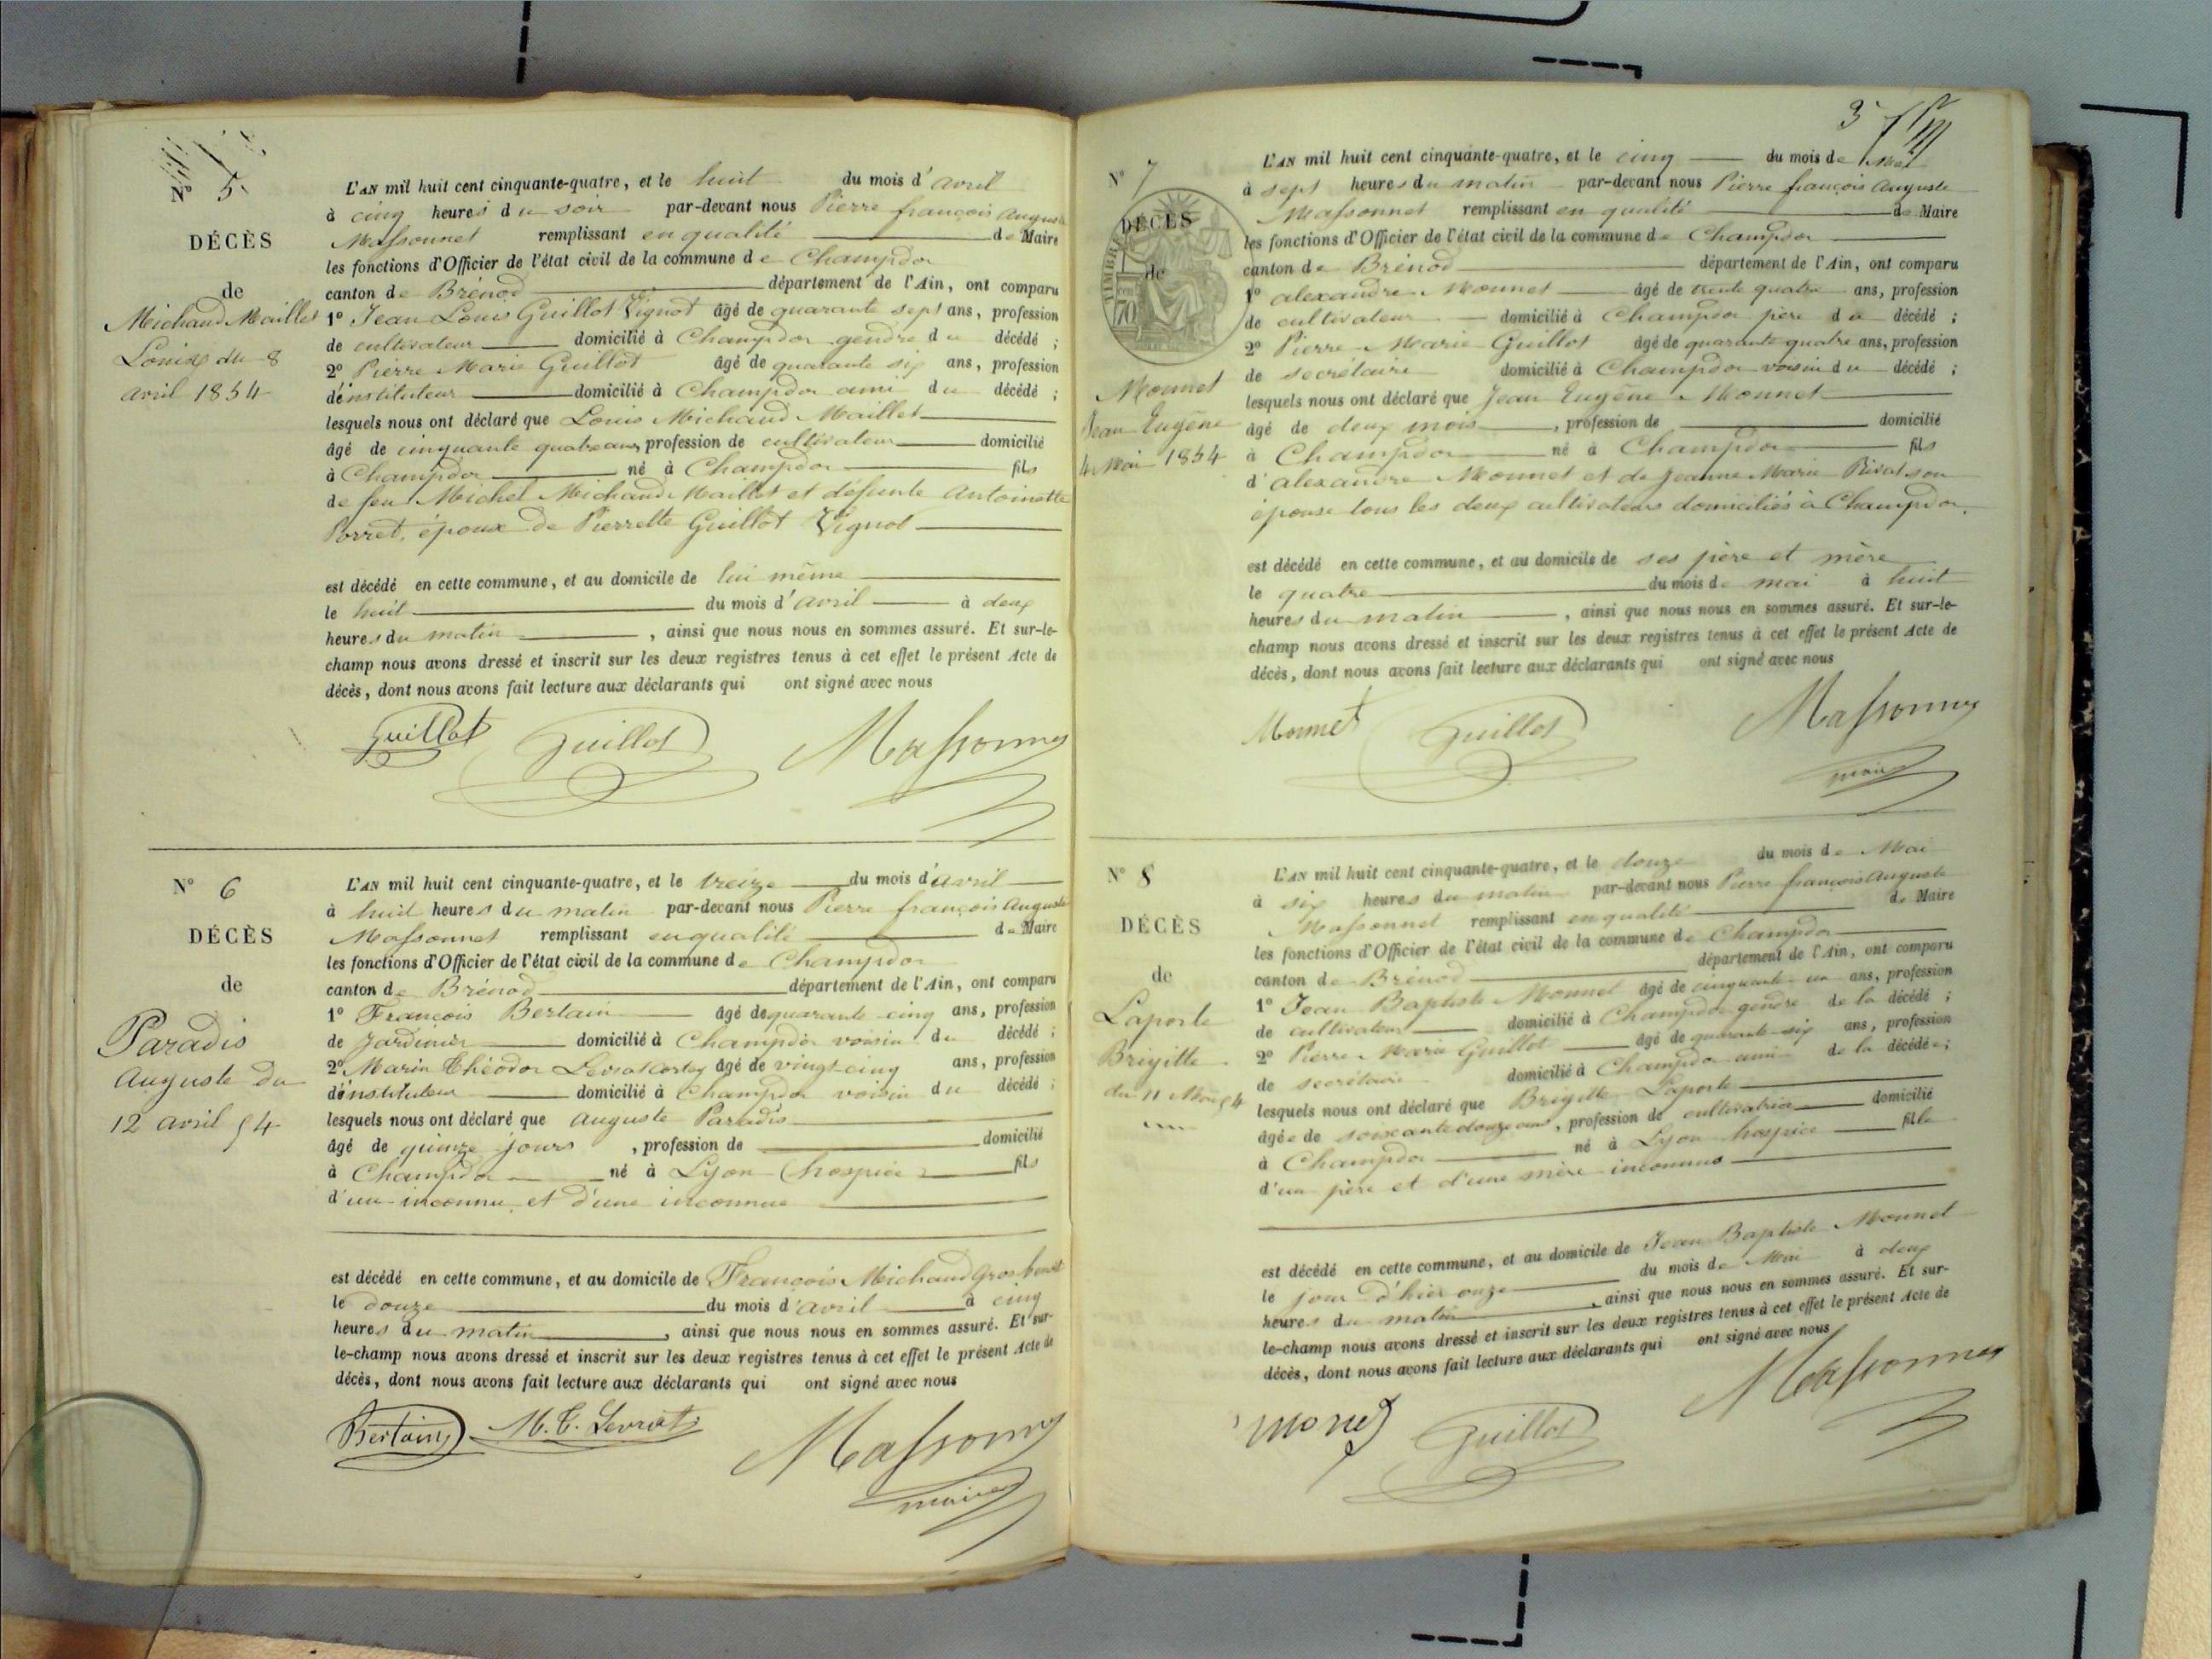 N° 5.
DÉCÈS
de
Michaud Maillet
Louis du 8
avril 1854
L'AN mil huit cent cinquante-quatre, et le huit du mois d'avril
à cinq heures du soir par-devant nous Pierre françois Auguste
Massonnet remplissant en qualité de Maire
les fonctions d'Officier de l'état civil de la commune de Champdor
canton de Brénod département de l'Ain, ont comparu
1° Jean Louis Guillot Vignot âgé de quarante sept ans, profession
de cultivateur domicilié à Champdor gendre du décédé ;
2° Pierre Marie Guillot âgé de quarante six ans, profession
d'instituteur domicilié à Champdor ami du décédé ;
lesquels nous ont déclaré que Louis Michaud Maillet
âgé de cinquante quatre ans, profession de cultivateur domicilié
à Champdor né à Champdor fils
de feu Michel Michaud Maillet et défunte Antoinette
Porret, époux de Pierrette Guillot Vignot
est décédé en cette commune, et au domicile de lui même
le huit du mois d'avril à deux
heures du matin, ainsi que nous nous en sommes assuré. Et sur-le-
champ nous avons dressé et inscrit sur les deux registres tenus à cet effet le présent Acte de
décès, dont nous avons fait lecture aux déclarants qui ont signé avec nous
Guillot Guillot Massonnet
N° 6
DÉCÈS
de
Paradis
Auguste du
12 avril 54
L'AN mil huit cent cinquante-quatre, et le treize du mois d'avril
à huit heures du matin par-devant nous Pierre françois Auguste
Massonnet remplissant en qualité de Maire
les fonctions d'Officier de l'état civil de la commune de Champdor
canton de Brénod département de l'Ain, ont comparu
1° François Bertain âgé de quarante cinq ans, profession
de Jardinier domicilié à Champdor voisin du décédé ;
2° Marin Théodor âgé de vingt cinq ans, profession
d'instituteur domicilié à Champdor voisin du décédé ;
lesquels nous ont déclaré que Auguste Paradis
âgé de quinze jours, profession de domicilié
à Champdor né à Lyon (hospice) fils
d'un inconnu et d'une inconnue
est décédé en cette commune, et au domicile de François Michaud Gros benoit
le douze du mois d'avril à cinq
heures du matin, ainsi que nous nous en sommes assuré. Et sur-
le-champ nous avons dressé et inscrit sur les deux registres tenus à cet effet le présent Acte de
décès, dont nous avons fait lecture aux déclarants qui ont signé avec nous
Bertain M. T. Levrat Massonnet
maire
3
N° 7
DÉCÈS
de
TIMBRE
70
Monnet
Jean Eugène
4 Mai 1854
L'AN mil huit cent cinquante-quatre, et le cinq du mois de Mai
à sept heures du matin par-devant nous Pierre françois Auguste
Massonnet remplissant en qualité de Maire
les fonctions d'Officier de l'état civil de la commune de Champdor
canton de Brénod département de l'Ain, ont comparu
1° alexandre Monnet âgé de trente quatre ans, profession
de cultivateur domicilié à Champdor père du décédé ;
2° Pierre Marie Guillot âgé de quarante quatre ans, profession
de secrétaire domicilié à Champdor voisin du décédé ;
lesquels nous ont déclaré que Jean Eugène Monnet
âgé de deux mois, profession de domicilié
à Champdor né à Champdor fils
d'alexandre Monnet et de Jeanne Marie Rivat son
épouse tous les deux cultivateurs domiciliés à Champdor.
est décédé en cette commune, et au domicile de ses père et mère
le quatre du mois de mai à huit
heures du matin, ainsi que nous nous en sommes assuré. Et sur-le-
champ nous avons dressé et inscrit sur les deux registres tenus à cet effet le présent Acte de
décès, dont nous avons fait lecture aux déclarants qui ont signé avec nous
Monnet Guillot Massonnet
maire
N° 8
DÉCÈS
de
Laporte
Brigitte
du 11 Mai 54
L'AN mil huit cent cinquante-quatre, et le douze du mois de Mai
à six heures du matin par-devant nous Pierre françois Auguste
Massonnet remplissant en qualité de Maire
les fonctions d'Officier de l'état civil de la commune de Champdor
canton de Brénod département de l'Ain, ont comparu
1° Jean Baptiste Monnet âgé de cinquante un ans, profession
de cultivateur domicilié à Champdor gendre de la décédé ;
2° Pierre Marie Guillot âgé de quarante six ans, profession
de secrétaire domicilié à Champdor ami de la décédée ;
lesquels nous ont déclaré que Brigitte Laporte
âgée de soixante douze ans, profession de cultivatrice domicilié
à Champdor né à Lyon hospice fille
d'un père et d'une mère inconnus
est décédé en cette commune, et au domicile de Jean Baptiste Monnet
le jour d'hier onze du mois de Mai à deux
heures du matin, ainsi que nous nous en sommes assuré. Et sur-
le-champ nous avons dressé et inscrit sur les deux registres tenus à cet effet le présent Acte de
décès, dont nous avons fait lecture aux déclarants qui ont signé avec nous
monet Guillot Massonnet